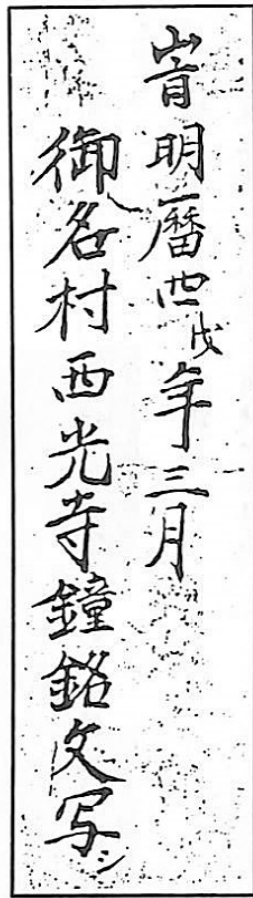 旹明暦四戌年三月
御名村西光寺鐘銘文写シ